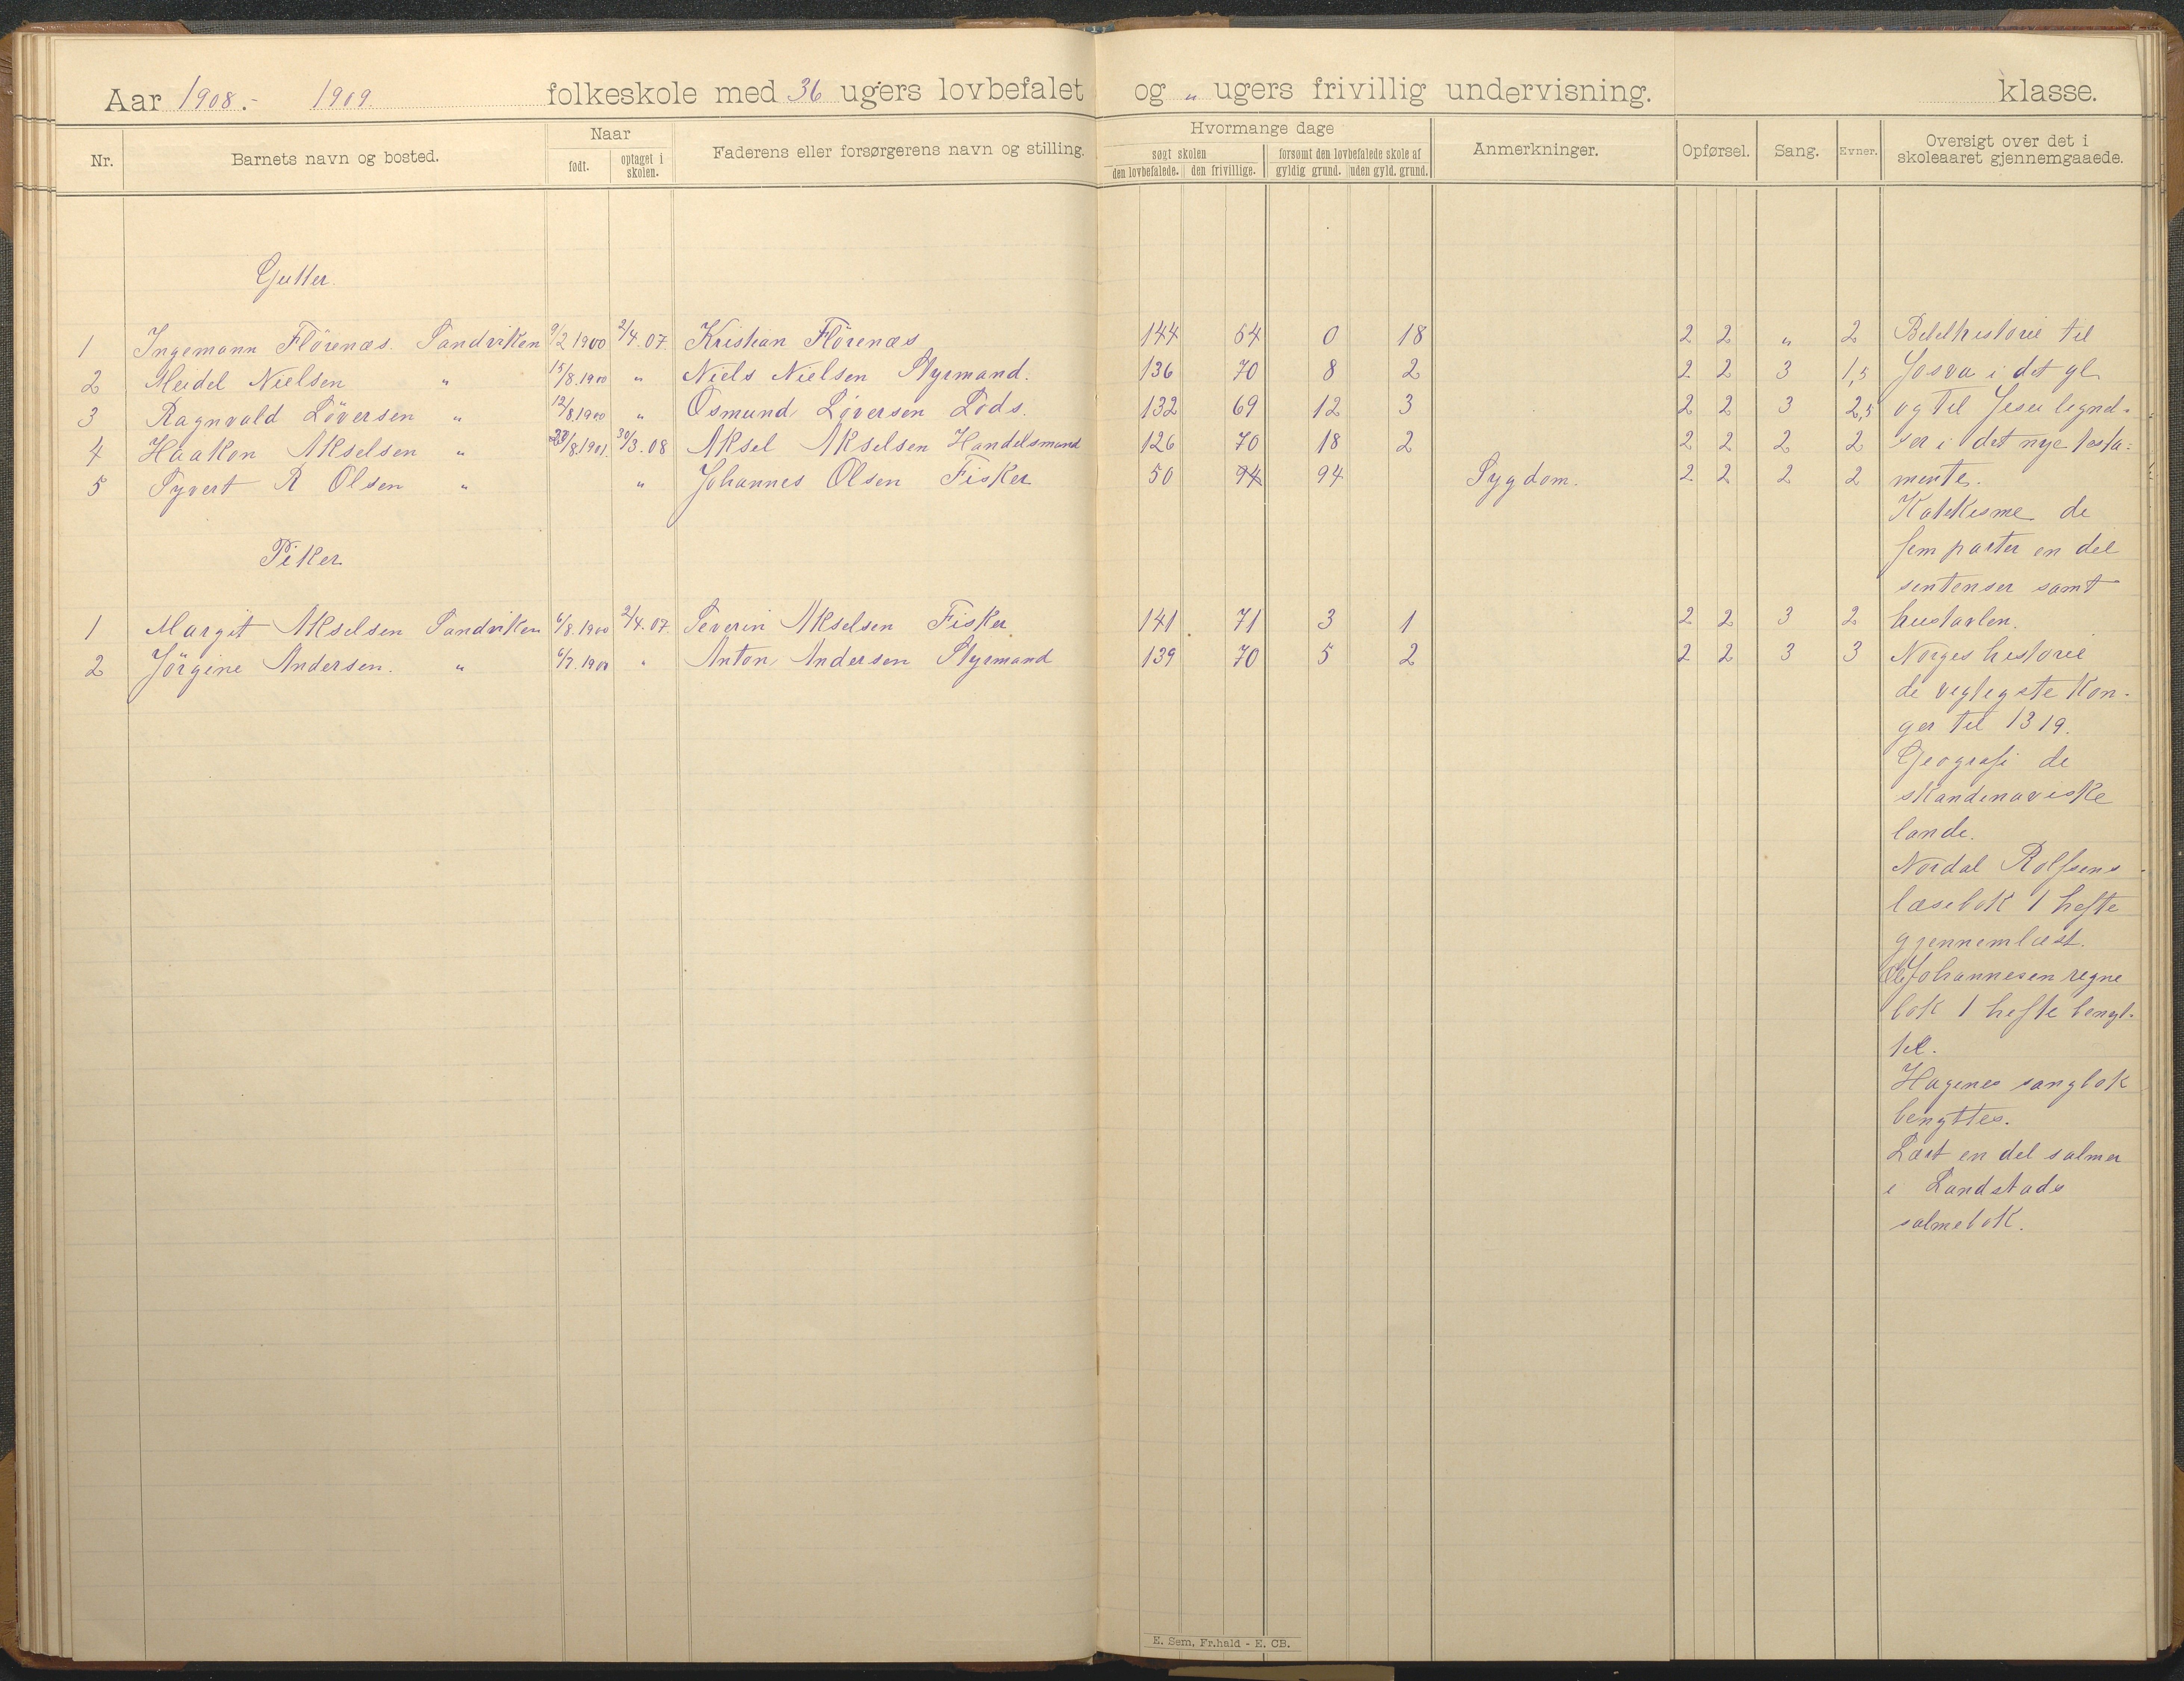 Aar 1908.- 1909 folkeskole med 36 ugers lovbefalet og „ ugers frivillig undervisning. klasse.
Nr. Barnets navn og bosted. Naar født. optaget i skolen. Faderens eller forsørgerens navn og stilling. Hvormange dage søgt skolen den lovbefalede. den frivillige. forsømt den lovbefalede skole af gyldig grund. uden gyld. grund. Anmerkninger. Opførsel. Sang. Evner. Oversigt over det i skoleaaret gjennemgaaede.
Gutter.
1 Ingemann Flörenæs. Sandviken 9/2 1900 2/4.07. Kristian Flörenæs 144 54 0 18 2 2 „ 2 Bibelhistorie til
2 Meidel Nielsen „ 15/8.1900 „ Niels Nielsen Styrmand. 136 70 8 2 2 2 3 1,5 Josva i det gl.
3 Ragnvald Löversen „ 12/8.1900 „ Osmund Löversen Lods. 132 69 12 3 2 2 3 2,5 og til Jesu lignel-
4 Haakon Akselsen „ /8.1901. 30/3.08 Aksel Akselsen Handelsmand 126 70 18 2 2 2 2 2 ser i det nye testa-
5 Syvert R Olsen „ „ Johannes Olsen Fisker 50 94 94 Sygdom. 2 2 2 2 mente.
Katekisme de
fem parter en del
Piker
sentenser samt
1 Margit Akselsen Sandviken 6/8.1900 2/4.07. Severin Akselsen Fisker 141 71 3 1 2 2 3 2 hustavlen.
2 Jörgine Andersen. „ 6/7.1900 „ Anton Andersen Styrmand 139 70 5 2 2 2 3 3 Norges historie
de vigtigste kon-
ger til 1319.
Geografi de
skandinaviske
lande.
Nordal Rolfsens
læsebok 1 hefte
gjennemlæst.
Johannesen regne
bok 1 hefte benyt-
tet.
Hagenes sangbok
benyttes.
Lært en del salmer
i Landstads
salmebok.
E. Sem, Fr.hald - E. CB.